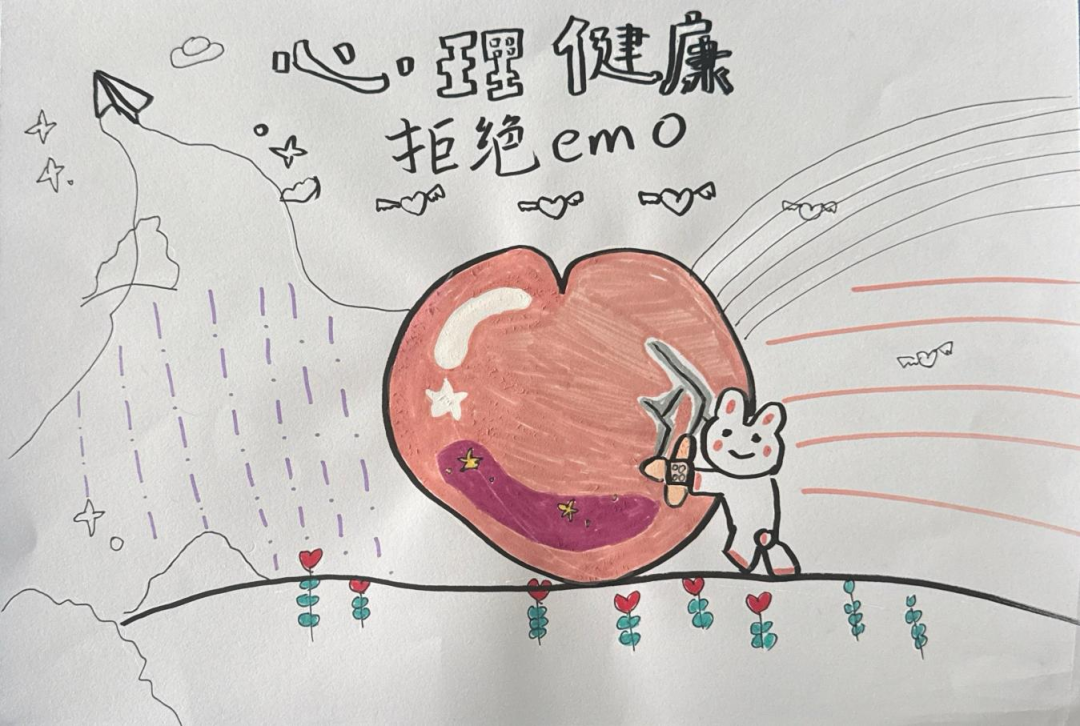 心理健康
拒绝emo